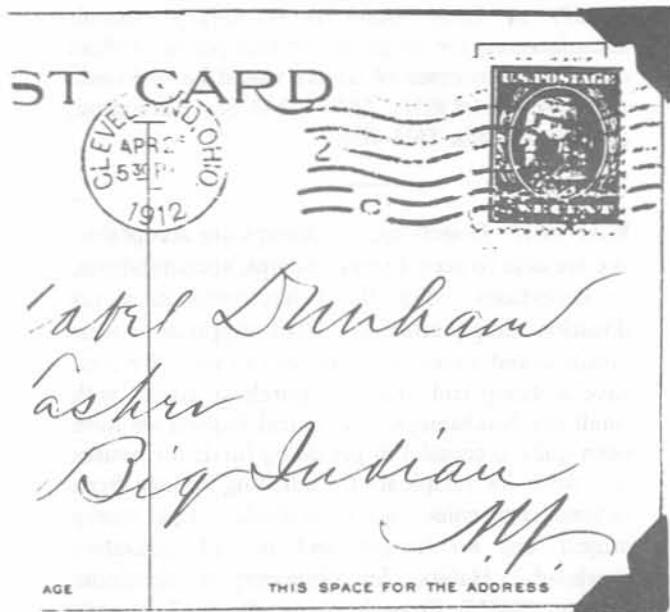 ST CARD
CLEVELAND, OHIO
APR 2
5 30 P
1912
2
C
U.S. POSTAGE
Dunham
Big Indian
N.Y.
AGE
THIS SPACE FOR THE ADDRESS